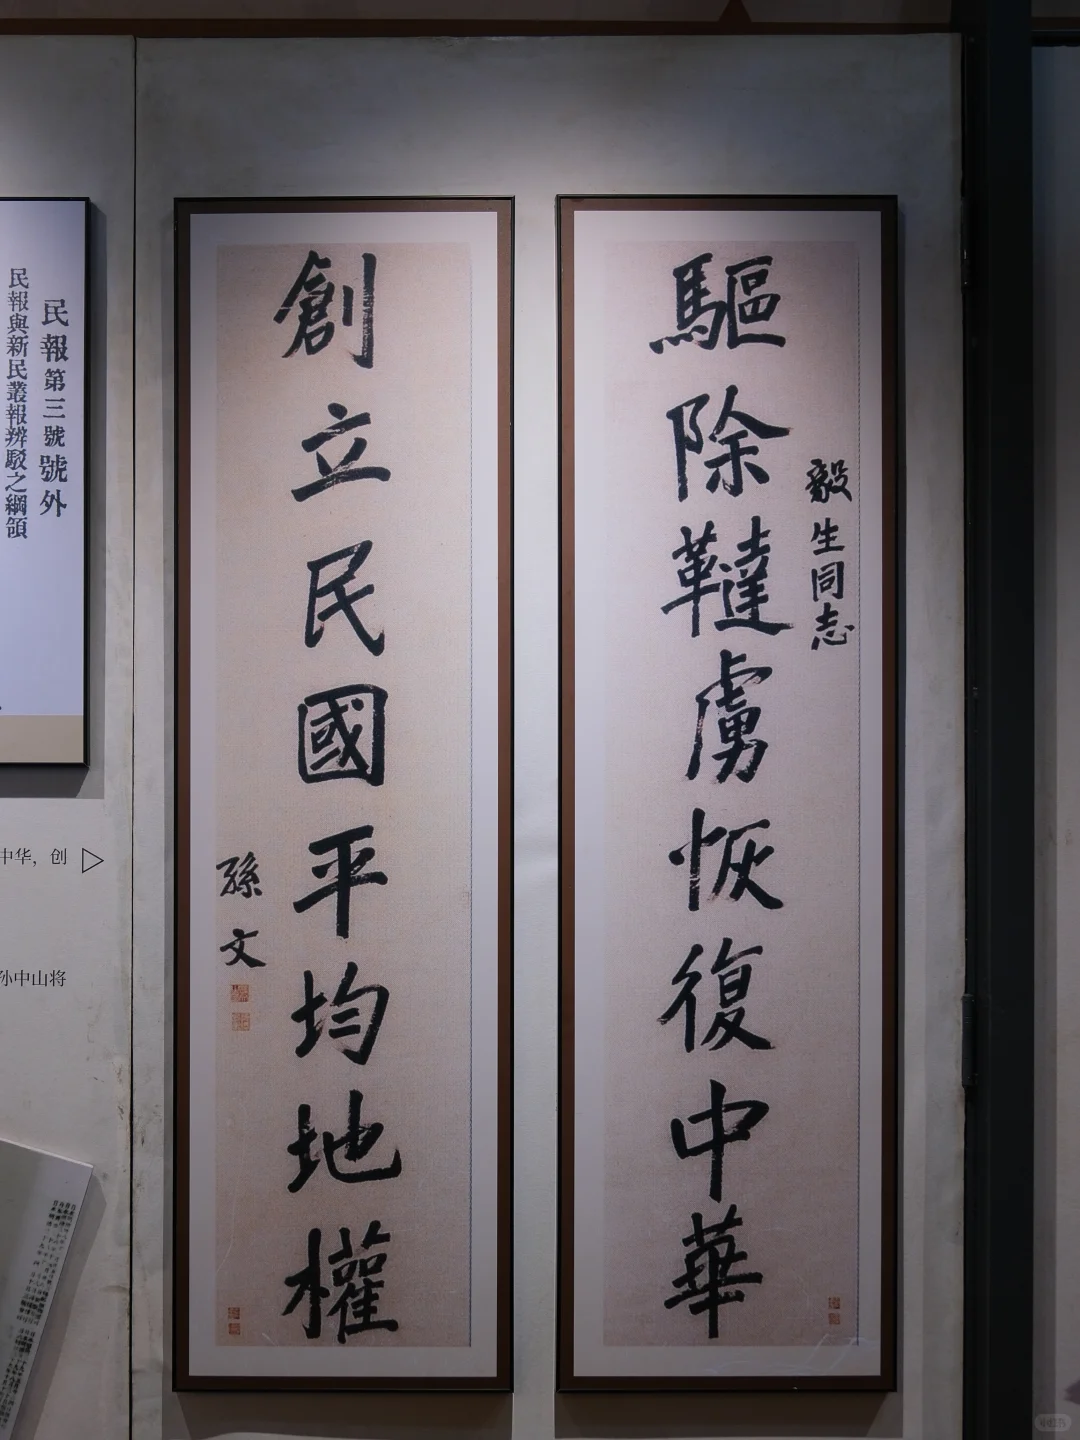 驅除韃虜恢復中華
毅生同志
創立民國平均地權
孫文
民報第三號號外
民報與新民叢報辨駁之綱領
中华，创
孙中山将